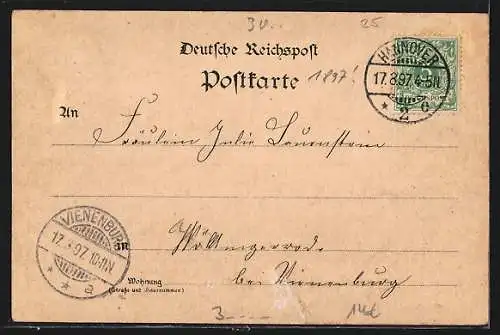 3v... 25
Deutsche Reichspost
Postkarte 1897!
HANNOVER
17.8.97.4-5N
* 2 c
An
Fräulein Julie Lauenstein
VIENENBURG
17.8.97.10-11N
* * a
in Wöltingerode
bei Vienenburg
Wohnung
(Straße und Hausnummer)
3----- 14d